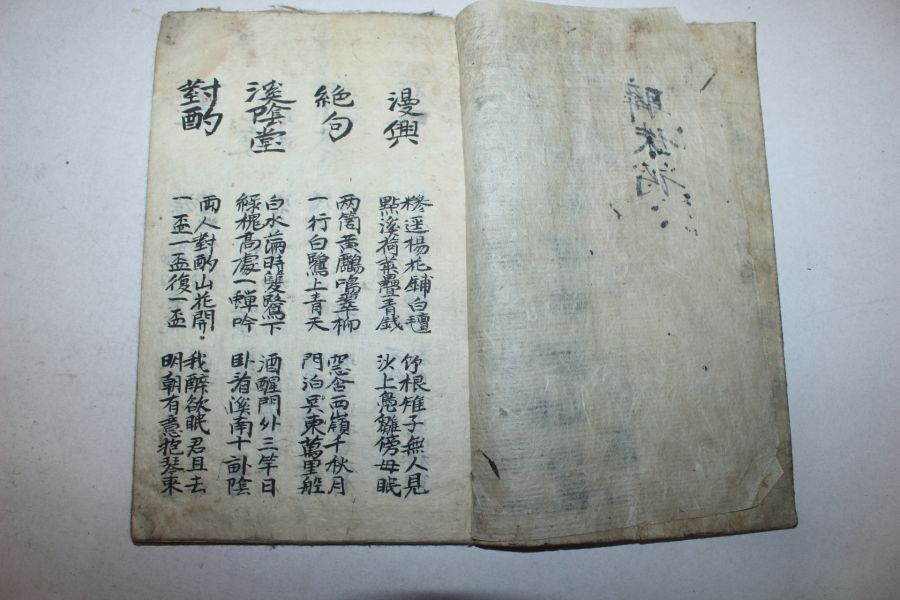 漫興
糝逕楊花鋪白氈
點溪荷葉疊青錢
竹根雉子無人見
沙上鳧雛傍母眠
絶句
两箇黃鸝鳴翠柳
一行白鷺上青天
窓含西嶺千秋月
門泊吳東萬里船
溪陰堂
白水滿時雙鷺下
綠槐高處一蟬吟
酒醒門外三竿日
卧看溪南十畝陰
對酌
兩人對酌山花開
一盃一盃復一盃
我醉欲眠君且去
明朝有意抱琴來